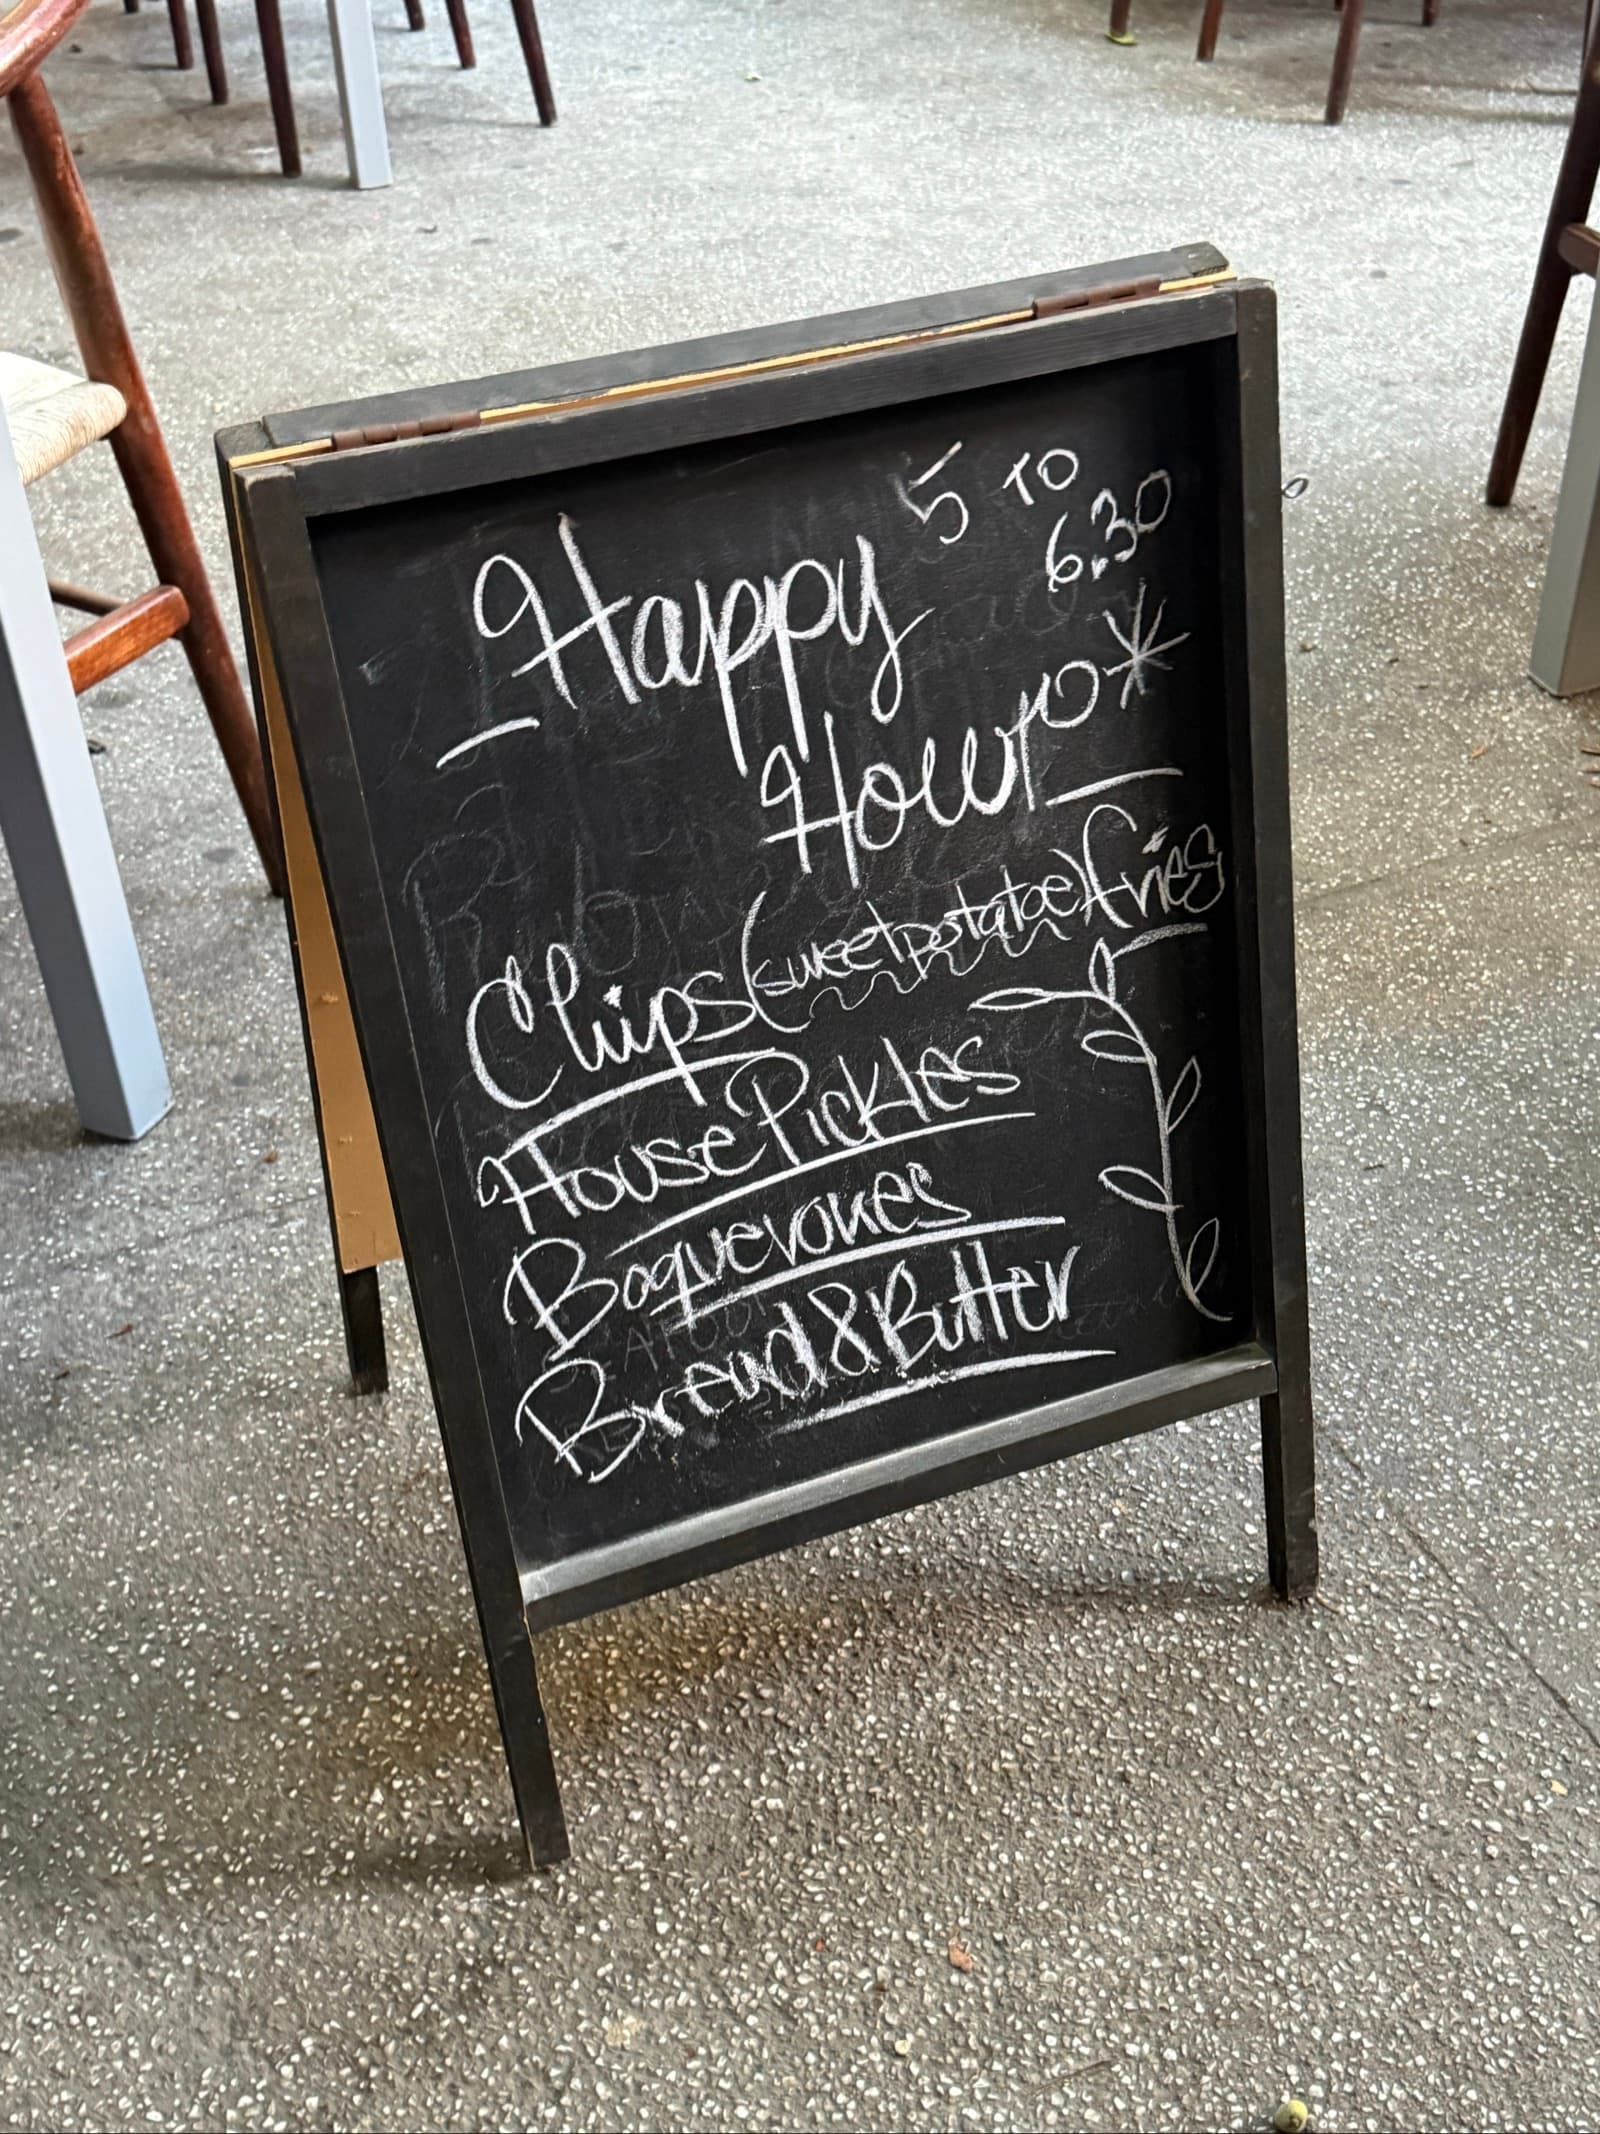 5 TO
6.30
Happy
Hour
Chips (sweet potatoe) fries
House Pickles
Boquerones
Bread & Butter